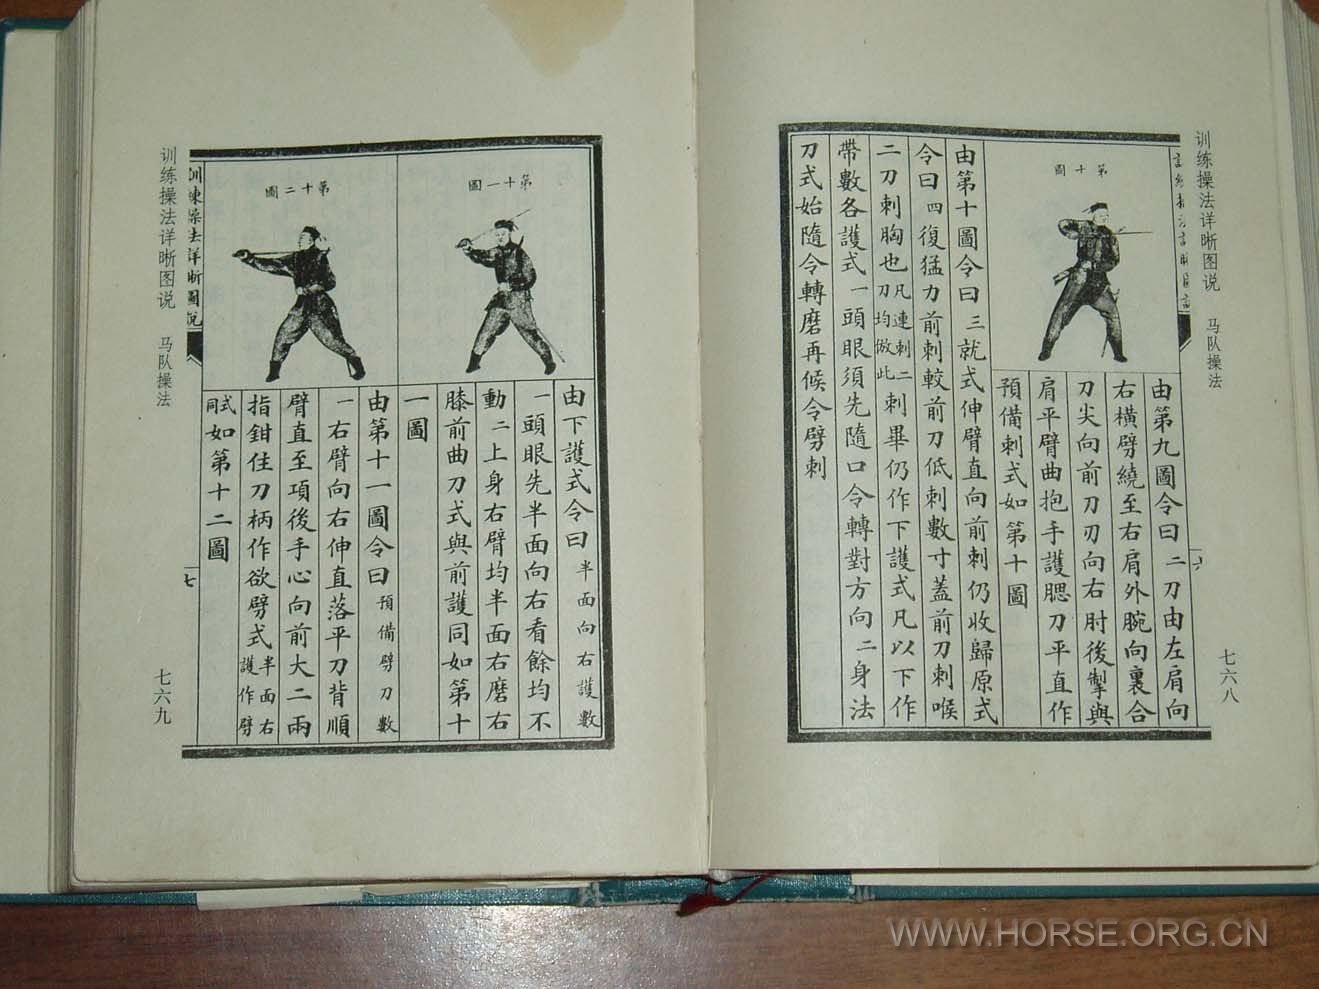 训练操法详晰图说 马队操法
七六八
第十圖
由第九圖令曰二刀由左肩向
右橫劈繞至右肩外腕向裏合
刀尖向前刀刃向右肘後掣與
肩平臂曲抱手護腮刀平直作
預備刺式如第十圖
由第十圖令曰三就式伸臂直向前刺仍收歸原式
令曰四復猛力前刺較前刀低刺數寸蓋前刀刺喉
二刀刺胸也凡連刺二刀均倣此刺畢仍作下護式凡以下作
帶數各護式一頭眼須先隨口令轉對方向二身法
刀式始隨令轉磨再候令劈刺
六
第十一圖
第十二圖
由下護式令曰半面向右護數
一頭眼先半面向右看餘均不
動二上身右臂均半面右磨右
膝前曲刀式與前護同如第十
一圖
由第十一圖令曰預備劈刀數
一右臂向右伸直落平刀背順
臂直至項後手心向前大二兩
指鉗住刀柄作欲劈式半面右護作劈
式同如第十二圖
訓練操法詳晰圖說
七
训练操法详晰图说 马队操法
七六九
WWW.HORSE.ORG.CN